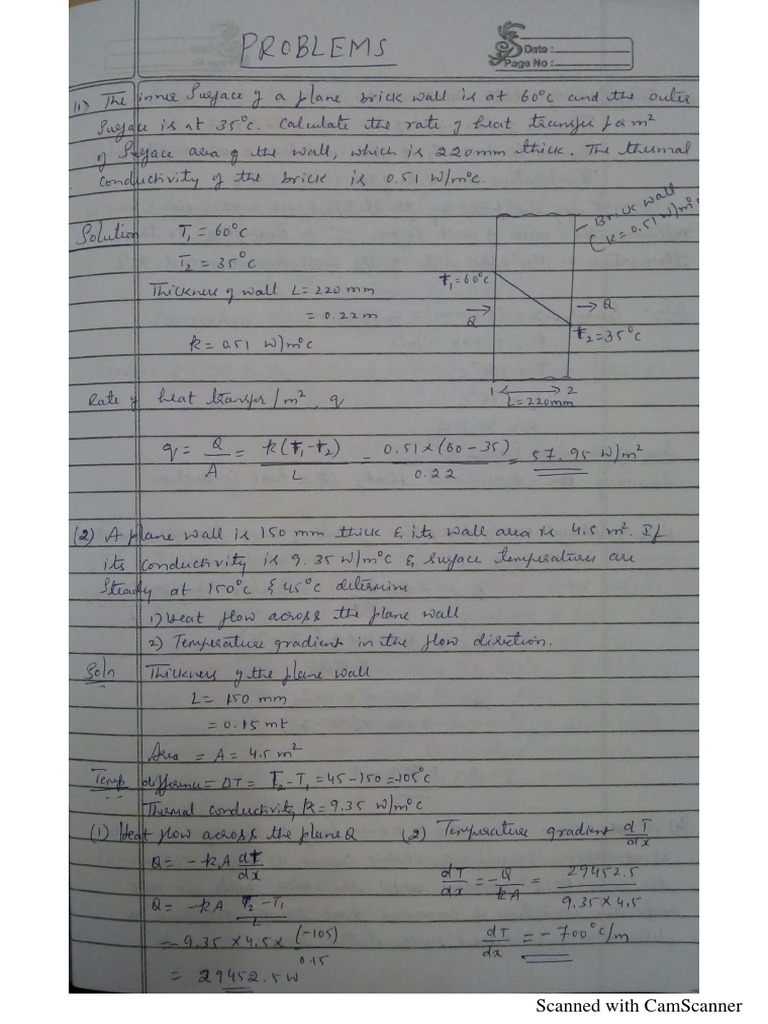 PROBLEMS
Date :
Page No :
11) The inner Surface of a plane brick wall is at 60°C and the outer
Surface is at 35°C. Calculate the rate of heat transfer per m²
of Surface area of the wall, which is 220mm thick. The thermal
conductivity of the brick is 0.51 W/m°C.
Solution T₁ = 60°C
T₂ = 35°C
Thickness of wall L = 220 mm
= 0.22 m
k = 0.51 W/m°C
Brick wall
(k = 0.51 W/m°C)
t₁ = 60°C
Q
Q
t₂ = 35°C
1 2
L = 220mm
Rate of heat transfer/m², q
q = Q/A = k(t₁-t₂)/L = 0.51 x (60-35)/0.22 = 57.95 W/m²
(2) A plane wall is 150 mm thick & its wall area is 4.5 m². If
its conductivity is 9.35 W/m°C & surface temperatures are
Steady at 150°C & 45°C determine
1) Heat flow across the plane wall
2) Temperature gradient in the flow direction.
Soln Thickness of the plane wall
L = 150 mm
= 0.15 mt
Area = A = 4.5 m²
Temp difference = ΔT = T₂-T₁ = 45-150 = -105°C
Thermal conductivity k = 9.35 W/m°C
(1) Heat flow across the plane Q (2) Temperature gradient dT/dx
Q = -kA dt/dx
dT/dx = -Q/kA = 29452.5/9.35 x 4.5
Q = -kA T₂-T₁/L
= -9.35 x 4.5 x (-105)/0.15
dT/dx = -700°C/m
= 29452.5 W
Scanned with CamScanner